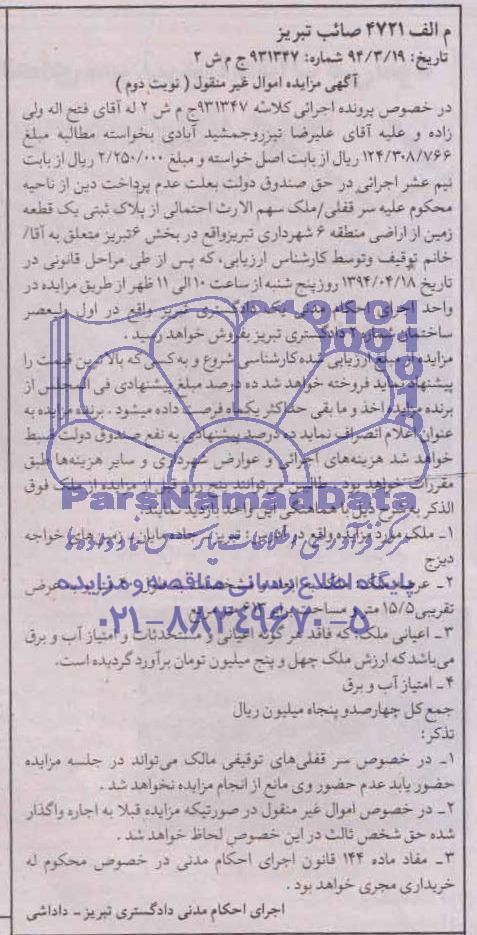 م الف ۴۷۲۱ صائب تبریز
تاریخ: ۹۴/۳/۱۹ شماره: ۹۳۱۳۴۷ ج م ش ۲
آگهی مزایده اموال غیر منقول ( نوبت دوم )
در خصوص پرونده اجرائی کلاسه ۹۳۱۳۴۷ج م ش ۲ له آقای فتح اله ولی
زاده و علیه آقای علیرضا تبرزوجمشید آبادی بخواسته مطالبه مبلغ
۱۲۴/۳۰۸/۷۶۶ ریال از بابت اصل خواسته و مبلغ ۲/۲۵۰/۰۰۰ ریال از بابت
نیم عشر اجرائی در حق صندوق دولت بعلت عدم پرداخت دین از ناحیه
محکوم علیه سر قفلی/ملک سهم الارث احتمالی از پلاک ثبتی یک قطعه
زمین از اراضی منطقه ۶ شهرداری تبریزواقع در بخش ۶تبریز متعلق به آقا/
خانم توقیف وتوسط کارشناس ارزیابی، که پس از طی مراحل قانونی در
تاریخ ۱۳۹۴/۰۴/۱۸ روز پنج شنبه از ساعت ۱۰ الی ۱۱ ظهر از طریق مزایده در
واحد اجرای احکام مدنی یک دادگستری تبریز واقع در اول ولیعصر
ساختمان شماره ۲ دادگستری تبریز بفروش خواهد رسید .
مزایده از مبلغ ارزیابی شده کارشناسی شروع و به کسی که بالاترین قیمت را
پیشنهاد نماید فروخته خواهد شد ده درصد مبلغ پیشنهادی فی المجلس از
برنده مزایده اخذ و ما بقی حداکثر یکماه فرصت داده میشود . برنده مزایده به
عنوان اعلام انصراف نماید ده درصد پیشنهادی به نفع صندوق دولت ضبط
خواهد شد هزینه‌های اجرائی و عوارض شهرداری و سایر هزینه‌ها طبق
مقررات خواهد بود . طالبین می‌توانند پنج روز قبل از مزایده از ملک فوق
الذکر به شرح ذیل با هماهنگی این واحد بازدید نمایند.
۱ـ ملک مورد مزایده واقع در آدرس: تبریز ـ جاده مایان ـ زمین‌های خواجه
دیزج
۲ـ عرصه ملک به عرض
تقریبی ۱۵/۵ متر و مساحت
۳ـ اعیانی ملک که فاقد هر گونه اعیانی و مستحدثات و امتیاز آب و برق
می‌باشد که ارزش ملک چهل و پنج میلیون تومان برآورد گردیده است.
۴ـ امتیاز آب و برق
جمع کل چهارصدو پنجاه میلیون ریال
تذکر:
۱ـ در خصوص سر قفلی‌های توقیفی مالک می‌تواند در جلسه مزایده
حضور یابد عدم حضور وی مانع از انجام مزایده نخواهد شد .
۲ـ در خصوص اموال غیر منقول در صورتیکه مزایده قبلا به اجاره واگذار
شده حق شخص ثالث در این خصوص لحاظ خواهد شد .
۳ـ مفاد ماده ۱۴۴ قانون اجرای احکام مدنی در خصوص محکوم له
خریداری مجری خواهد بود .
اجرای احکام مدنی دادگستری تبریز ـ داداشی
ParsNamadData
مرکز فرآوری اطلاعات پارس نماد داده‌ها
پایگاه اطلاع رسانی مناقصه و مزایده
۰۲۱-۸۸۳۴۹۶۷۰-۵